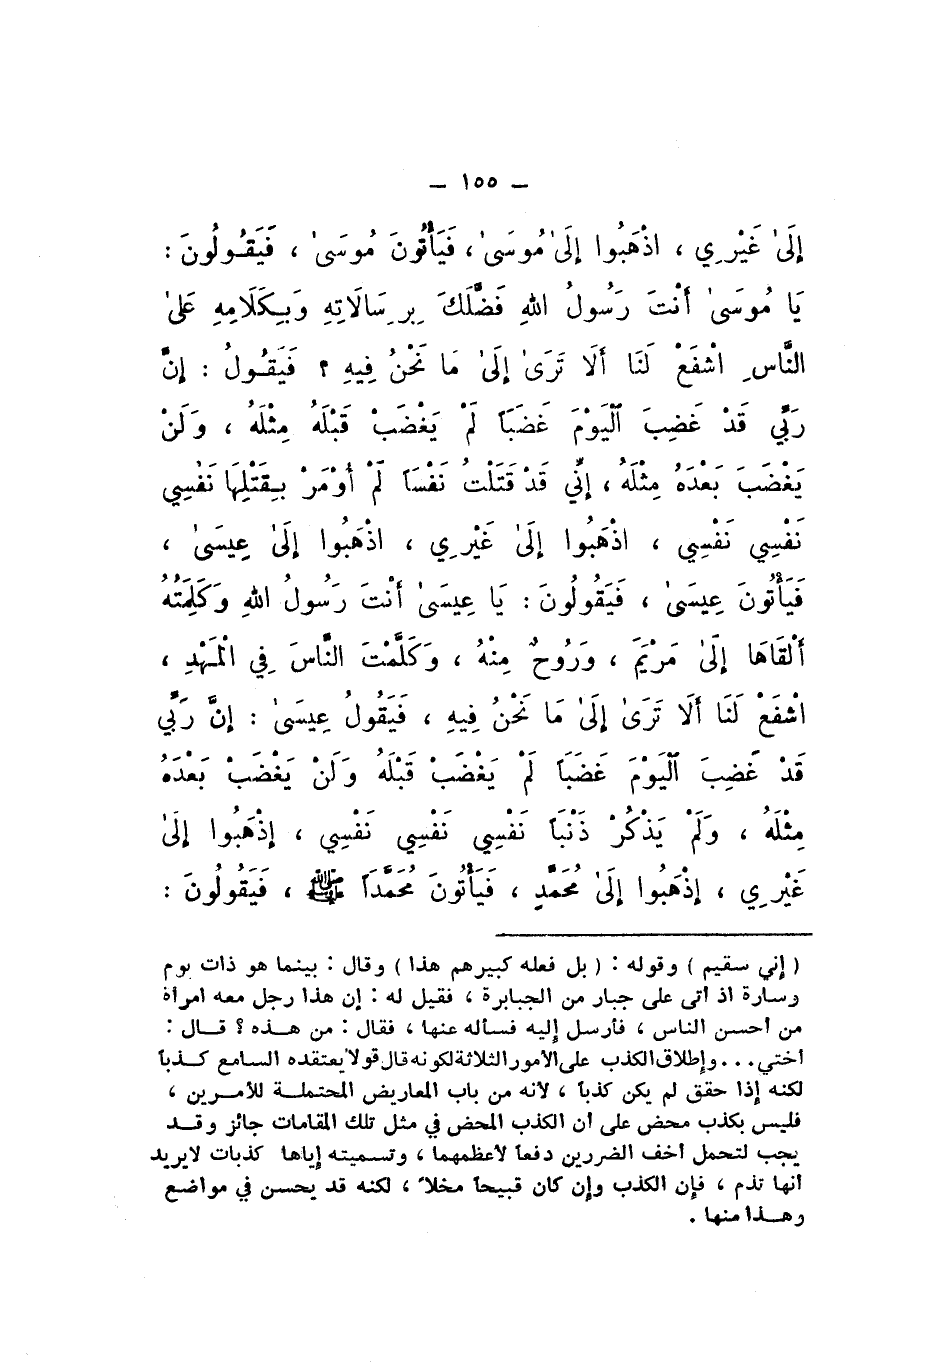 – ١٥٥ –
إِلَىٰ غَيْرِي ، اذْهَبُوا إِلَىٰ مُوسَىٰ ، فَيَأْتُونَ مُوسَىٰ ، فَيَقُولُونَ :
يَا مُوسَىٰ أَنْتَ رَسُولُ اللهِ فَضَّلَكَ بِرِسَالَاتِهِ وَبِكَلَامِهِ عَلىٰ
النَّاسِ اشْفَعْ لَنَا أَلَا تَرَىٰ إِلَىٰ مَا نَحْنُ فِيهِ ؟ فَيَقُولُ : إِنَّ
رَبِّي قَدْ غَضِبَ آلْيَوْمَ غَضَبَاً لَمْ يَغْضَبْ قَبْلَهُ مِثْلَهُ ، وَلَنْ
يَغْضَبَ بَعْدَهُ مِثْلَهُ ، إِنِّي قَدْ قَتَلْتُ نَفْسَاً لَمْ أُومَرْ بِقَتْلِهَا نَفْسِي
نَفْسِي نَفْسِي ، اذْهَبُوا إِلَىٰ غَيْرِي ، اذْهَبُوا إِلَىٰ عِيسَىٰ ،
فَيَأْتُونَ عِيسَىٰ ، فَيَقُولُونَ : يَا عِيسَىٰ أَنْتَ رَسُولُ اللهِ وَكَلِمَتُهُ
أَلْقَاهَا إِلَىٰ مَرْيَمَ ، وَرُوحٌ مِنْهُ ، وَكَلَّمْتَ النَّاسَ فِي الْمَهْدِ ،
اشْفَعْ لَنَا أَلَا تَرَىٰ إِلَىٰ مَا نَحْنُ فِيهِ ، فَيَقُولُ عِيسَىٰ : إِنَّ رَبِّي
قَدْ غَضِبَ آلْيَوْمَ غَضَبَاً لَمْ يَغْضَبْ قَبْلَهُ وَلَنْ يَغْضَبْ بَعْدَهُ
مِثْلَهُ ، وَلَمْ يَذْكُرْ ذَنْبَاً نَفْسِي نَفْسِي نَفْسِي ، إِذْهَبُوا إِلَىٰ
غَيْرِي ، إِذْهَبُوا إِلَىٰ مُحَمَّدٍ ، فَيَأْتُونَ مُحَمَّدَاً ﷺ ، فَيَقُولُونَ :
( إني سقيم ) وقوله : ( بل فعله كبيرهم هذا ) وقال : بينما هو ذات يوم
وسارة اذ أتى على جبار من الجبابرة ، فقيل له : إن هذا رجل معه امرأة
من أحسن الناس ، فأرسل إليه فسأله عنها ، فقال : من هذه ؟ قال :
أختي... وإطلاق الكذب على الأمور الثلاثة لكونه قال قولا يعتقده السامع كذباً
لكنه إذا حقق لم يكن كذباً ، لأنه من باب المعاريض المحتملة للأمرين ،
فليس بكذب محض على أن الكذب المحض في مثل تلك المقامات جائز وقد
يجب لتحمل أخف الضررين دفعاً لأعظمهما ، وتسميته إياها كذبات لا يريد
أنها تذم ، فإن الكذب وإن كان قبيحاً مخلاً ، لكنه قد يحسن في مواضع
وهذا منها .